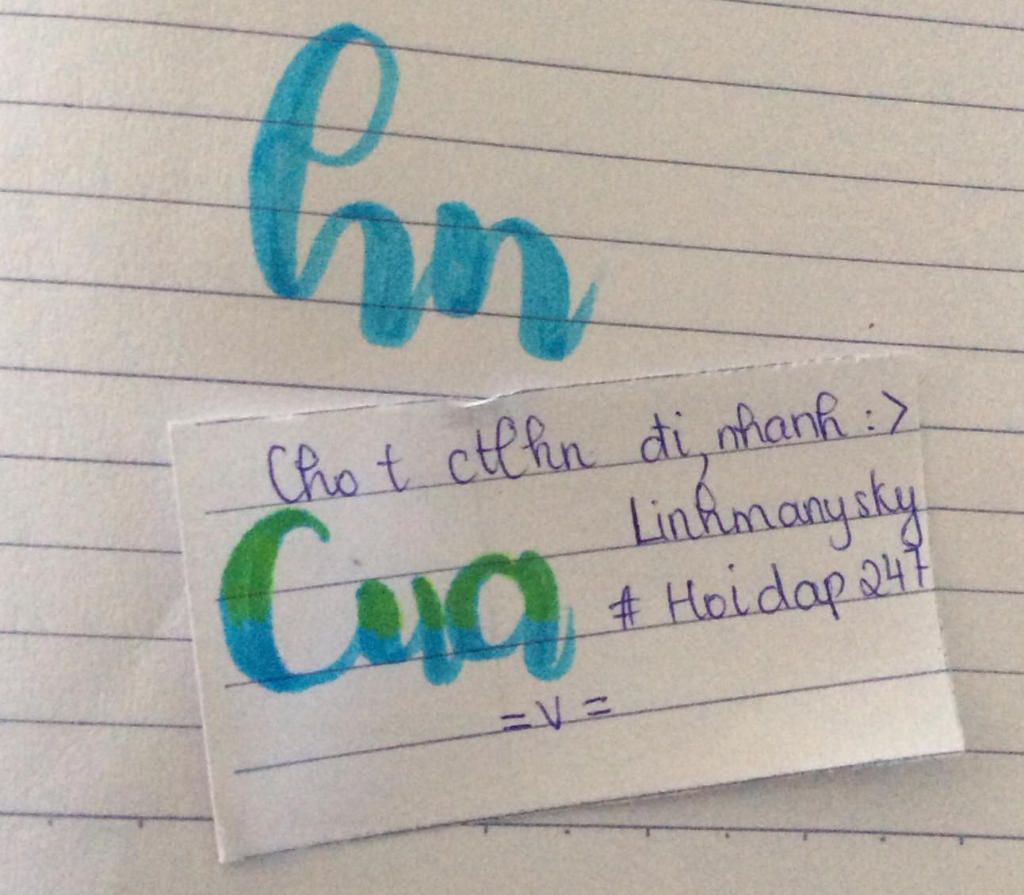 hn
Cho t ctlhn đi, nhanh :>
Linhmanysky
Cua
# Hoidap247
= v =